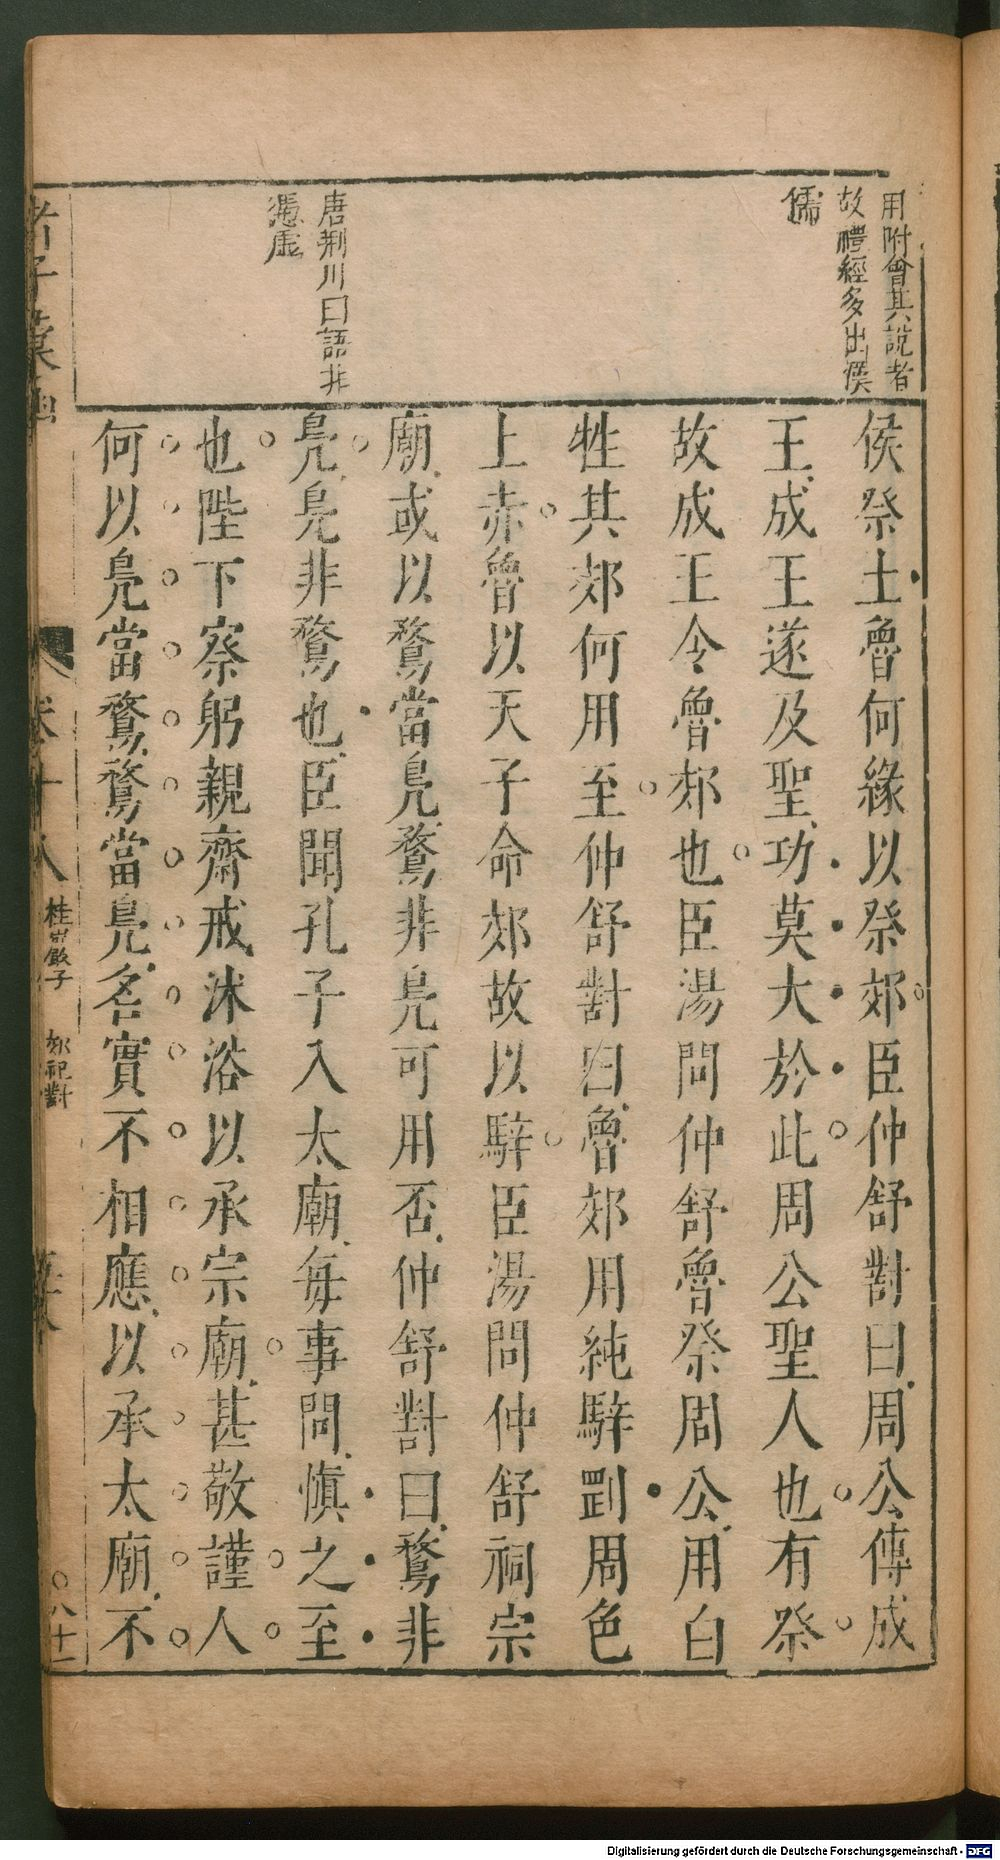 用附會其說者
故禮經多出僕
儒
唐荊川曰語非
憑虛
侯祭土魯何緣以祭郊臣仲舒對曰周公傅成
王成王遂及聖功莫大於此周公聖人也有祭
故成王令魯郊也臣湯問仲舒魯祭周公用白
牲其郊何用至仲舒對曰魯郊用純騂剛周色
上赤魯以天子命郊故以騂臣湯問仲舒祠宗
廟或以鶩當鳧鶩非鳧可用否仲舒對曰鶩非
鳧鳧非鶩也臣聞孔子入太廟每事問慎之至
也陛下察躬親齋戒沐浴以承宗廟甚敬謹人
何以鳧當鶩鶩當鳧名實不相應以承太廟不
卷十八
桂巖子
郊祀對
八十一
Digitalisierung gefördert durch die Deutsche Forschungsgemeinschaft - DFG